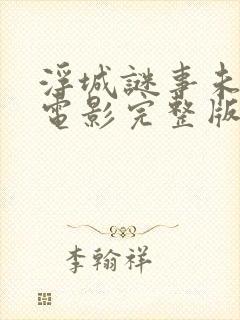 浮城謎事未
電影完整版
李翰祥